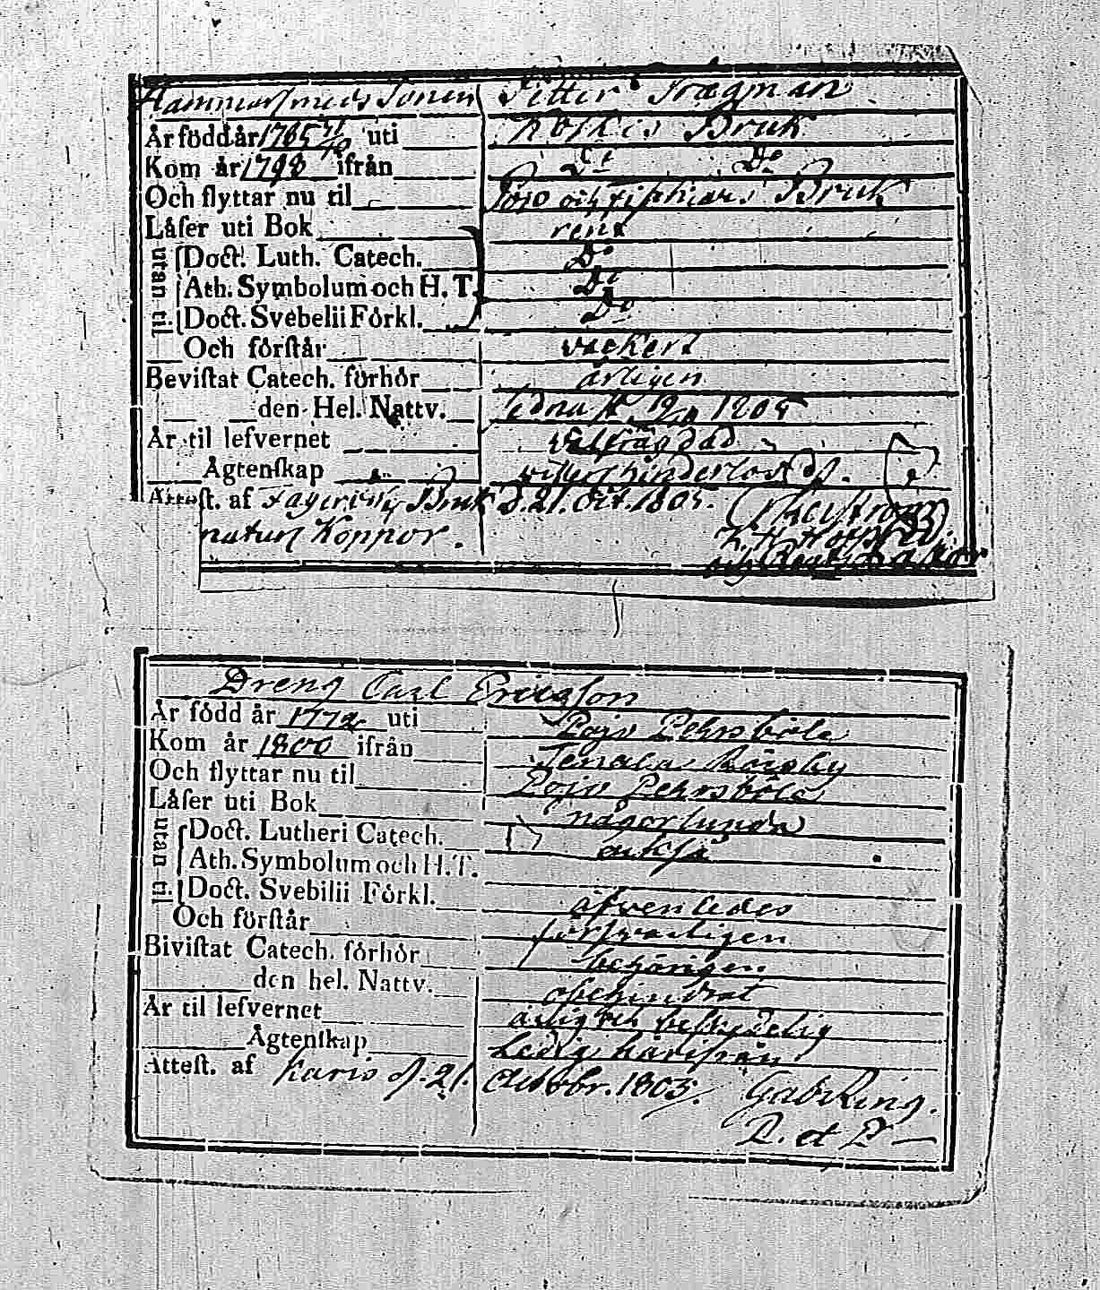 Hammarsmeds Sonen Petter Trägman
År född år 1785 uti Koskis Bruk
Kom år 1798 ifrån Do Do
Och flyttar nu til Pojo och Fiskars Bruk
Låſer uti Bok rent
utan til
Doct. Luth. Catech. Do
Ath. Symbolum och H. T. Do
Doct. Svebelii Förkl. Do
Och förſtår vackert
Beviſtat Catech. förhör årligen
den Hel. Nattv. sednast 1805
År til lefvernet välfrägdad
Ägtenſkap hinderlös
Atteſt. af Fagerviks Bruk d. 21. Oct. 1805.
Dreng Carl Ericsson
År född år 1772 uti Pojo Pehrsböle
Kom år 1800 ifrån Tenala
Och flyttar nu til Pojo Pehrsböle
Låſer uti Bok någorlunda
utan til
Doct. Lutheri Catech. också
Ath. Symbolum och H. T.
Doct. Svebilii Förkl. äfvenledes
Och förſtår försvarligen
Biviſtat Catech. förhör behörigen
den hel. Nattv. obehindrat
År til lefvernet ärlig och beskedelig
Ägtenſkap Ledig härifrån
Atteſt. af Karis d. 21. Octobr. 1805. Gab. Ring.
P. et P.